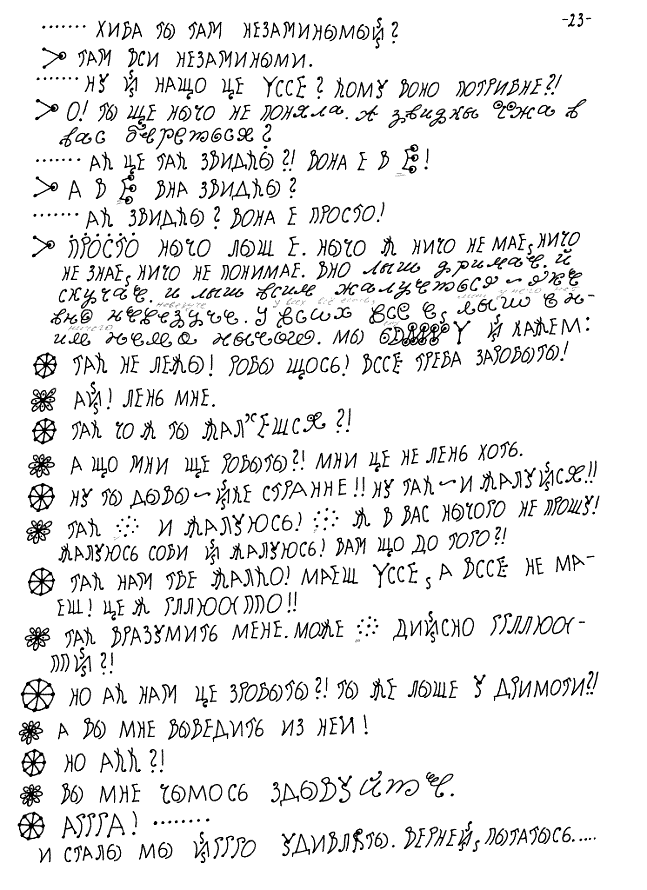 -23-
....... ХИБА ТЫ ТАМ НЕЗАМИНЫМЫЙ?
> ТАМ ВСИ НЕЗАМИНЫМИ.
....... НУ Й НАЩО ЦЕ УССЕ? КОМУ ВОНО ПОТРИБНЕ?!
> О! ТЫ ЩЕ НЫЧО НЕ ПОНЯЛА. А звидкы
вас береться?
....... АК ЦЕ ТАК ЗВИДКЫ?! ВОНА Е В Ё!
> А В Ё ВНА ЗВИДКЫ?
....... АК ЗВИДКЫ? ВОНА Е ПРОСТО!
> ПРОСТО НЫЧО ЛЫШ Е. НЫЧО Ж НИЧО НЕ МАЕ, НИЧО
НЕ ЗНАЕ, НИЧО НЕ ПОНИМАЕ. ВНО лыш дримае. й
скучае. и лыш всим жалується ~ яке
вно невезуче. У всих все е, лыш в н-
им нема нычого. МЫ У Й КАЖЕМ:
ТАК НЕ ЛЕЖЫ! РОБЫ ЩОСЬ! ВССЕ ТРЕБА ЗАРОБЫТЫ!
АЙ! ЛЕНЬ МНЕ.
ТАК ЧО Ж ТЫ ЖАЛ'ЕШСЯ?!
А ЩО МНИ ЩЕ РОБЫТЫ?! МНИ ЦЕ НЕ ЛЕНЬ ХОТЬ.
НУ ТЫ ДЫВЫ ~ ЙКЕ СТРАННЕ!! НУ ТАК ~ И ЖАЛУЙСЯ!!
ТАК И ЖАЛУЮСЬ! Ж В ВАС НЫЧОГО НЕ ПРОШУ!
ЖАЛУЮСЬ СОБИ Й ЖАЛУЮСЬ! ВАМ ЩО ДО ТОГО?!
ТАК НАМ ТВЕ ЖАЛКО! МАЕШ УССЕ, А ВССЕ НЕ МА-
ЕШ! ЦЕ Ж!!
ТАК ВРАЗУМИТЬ МЕНЕ. МОЖЕ ДИЙСНО
?!
НО АК НАМ ЦЕ ЗРОБЫТЫ?! ТЫ ЖЕ ЛЫШЕ У ДРИМОТИ?!
А ВЫ МНЕ ВЫВЕДИТЬ ИЗ НЕИ!
НО АКК?!
ВЫ МНЕ ЧЫМОСЬ ЗДЫВУйте.
АГГГА! ........
И СТАЛЫ МЫ ЙГГГО УДИВЛЯТЫ. ВЕРНЕЙ, ПЫТАТЫСЬ.....